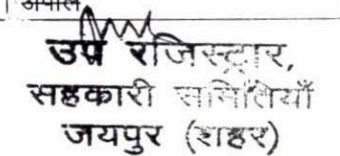 अपील
उप रजिस्ट्रार,
सहकारी समितियाँ
जयपुर (शहर)